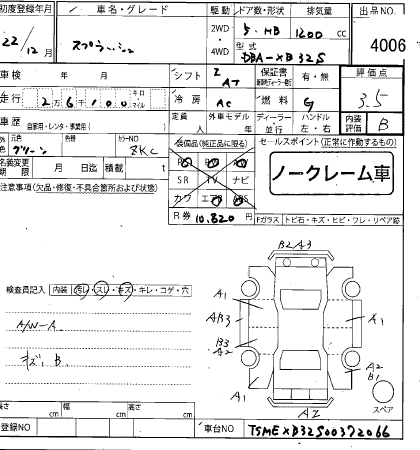 初度登録年月 車名・グレード 駆動 ドア数・形状 排気量 出品NO
22/12月 スプラッシュ 2WD・4WD 5 HB 1200cc 4006
型式 DBA-XB32S
車検 年 月 シフト I AT 保証書 有・無 評価点
走行 2万6千100 キロ マイル 冷房 AC 燃料 G 3.5
車歴 自家用・レンタ・事業用( ) 定員 人 外車モデル 年 ディーラー 並行 ハンドル 左・右 内装評価 B
外色 元色 グリーン 色替 カラーNO ZKC 装備品(純正品に限る) セールスポイント(正常に作動するもの)
名義変更期限 月 日迄 積載 t ノークレーム車
SR TV ナビ
注意事項(欠品・修復・不具合箇所および状態) カワ エアB
R券 10,820円 Fガラス トビ石・キズ・ヒビ・ワレ・リペア跡
B2 A3
検査員記入 内装 汚レ・スレ・キズ・キレ・コゲ・穴
A1
AB3
A1
B3
A2
A/W-A
キズ、B
A2
B1
A1
A2
スペア
長さ cm 幅 cm 高さ cm
登録NO 車台NO TSMEXB32S00372066